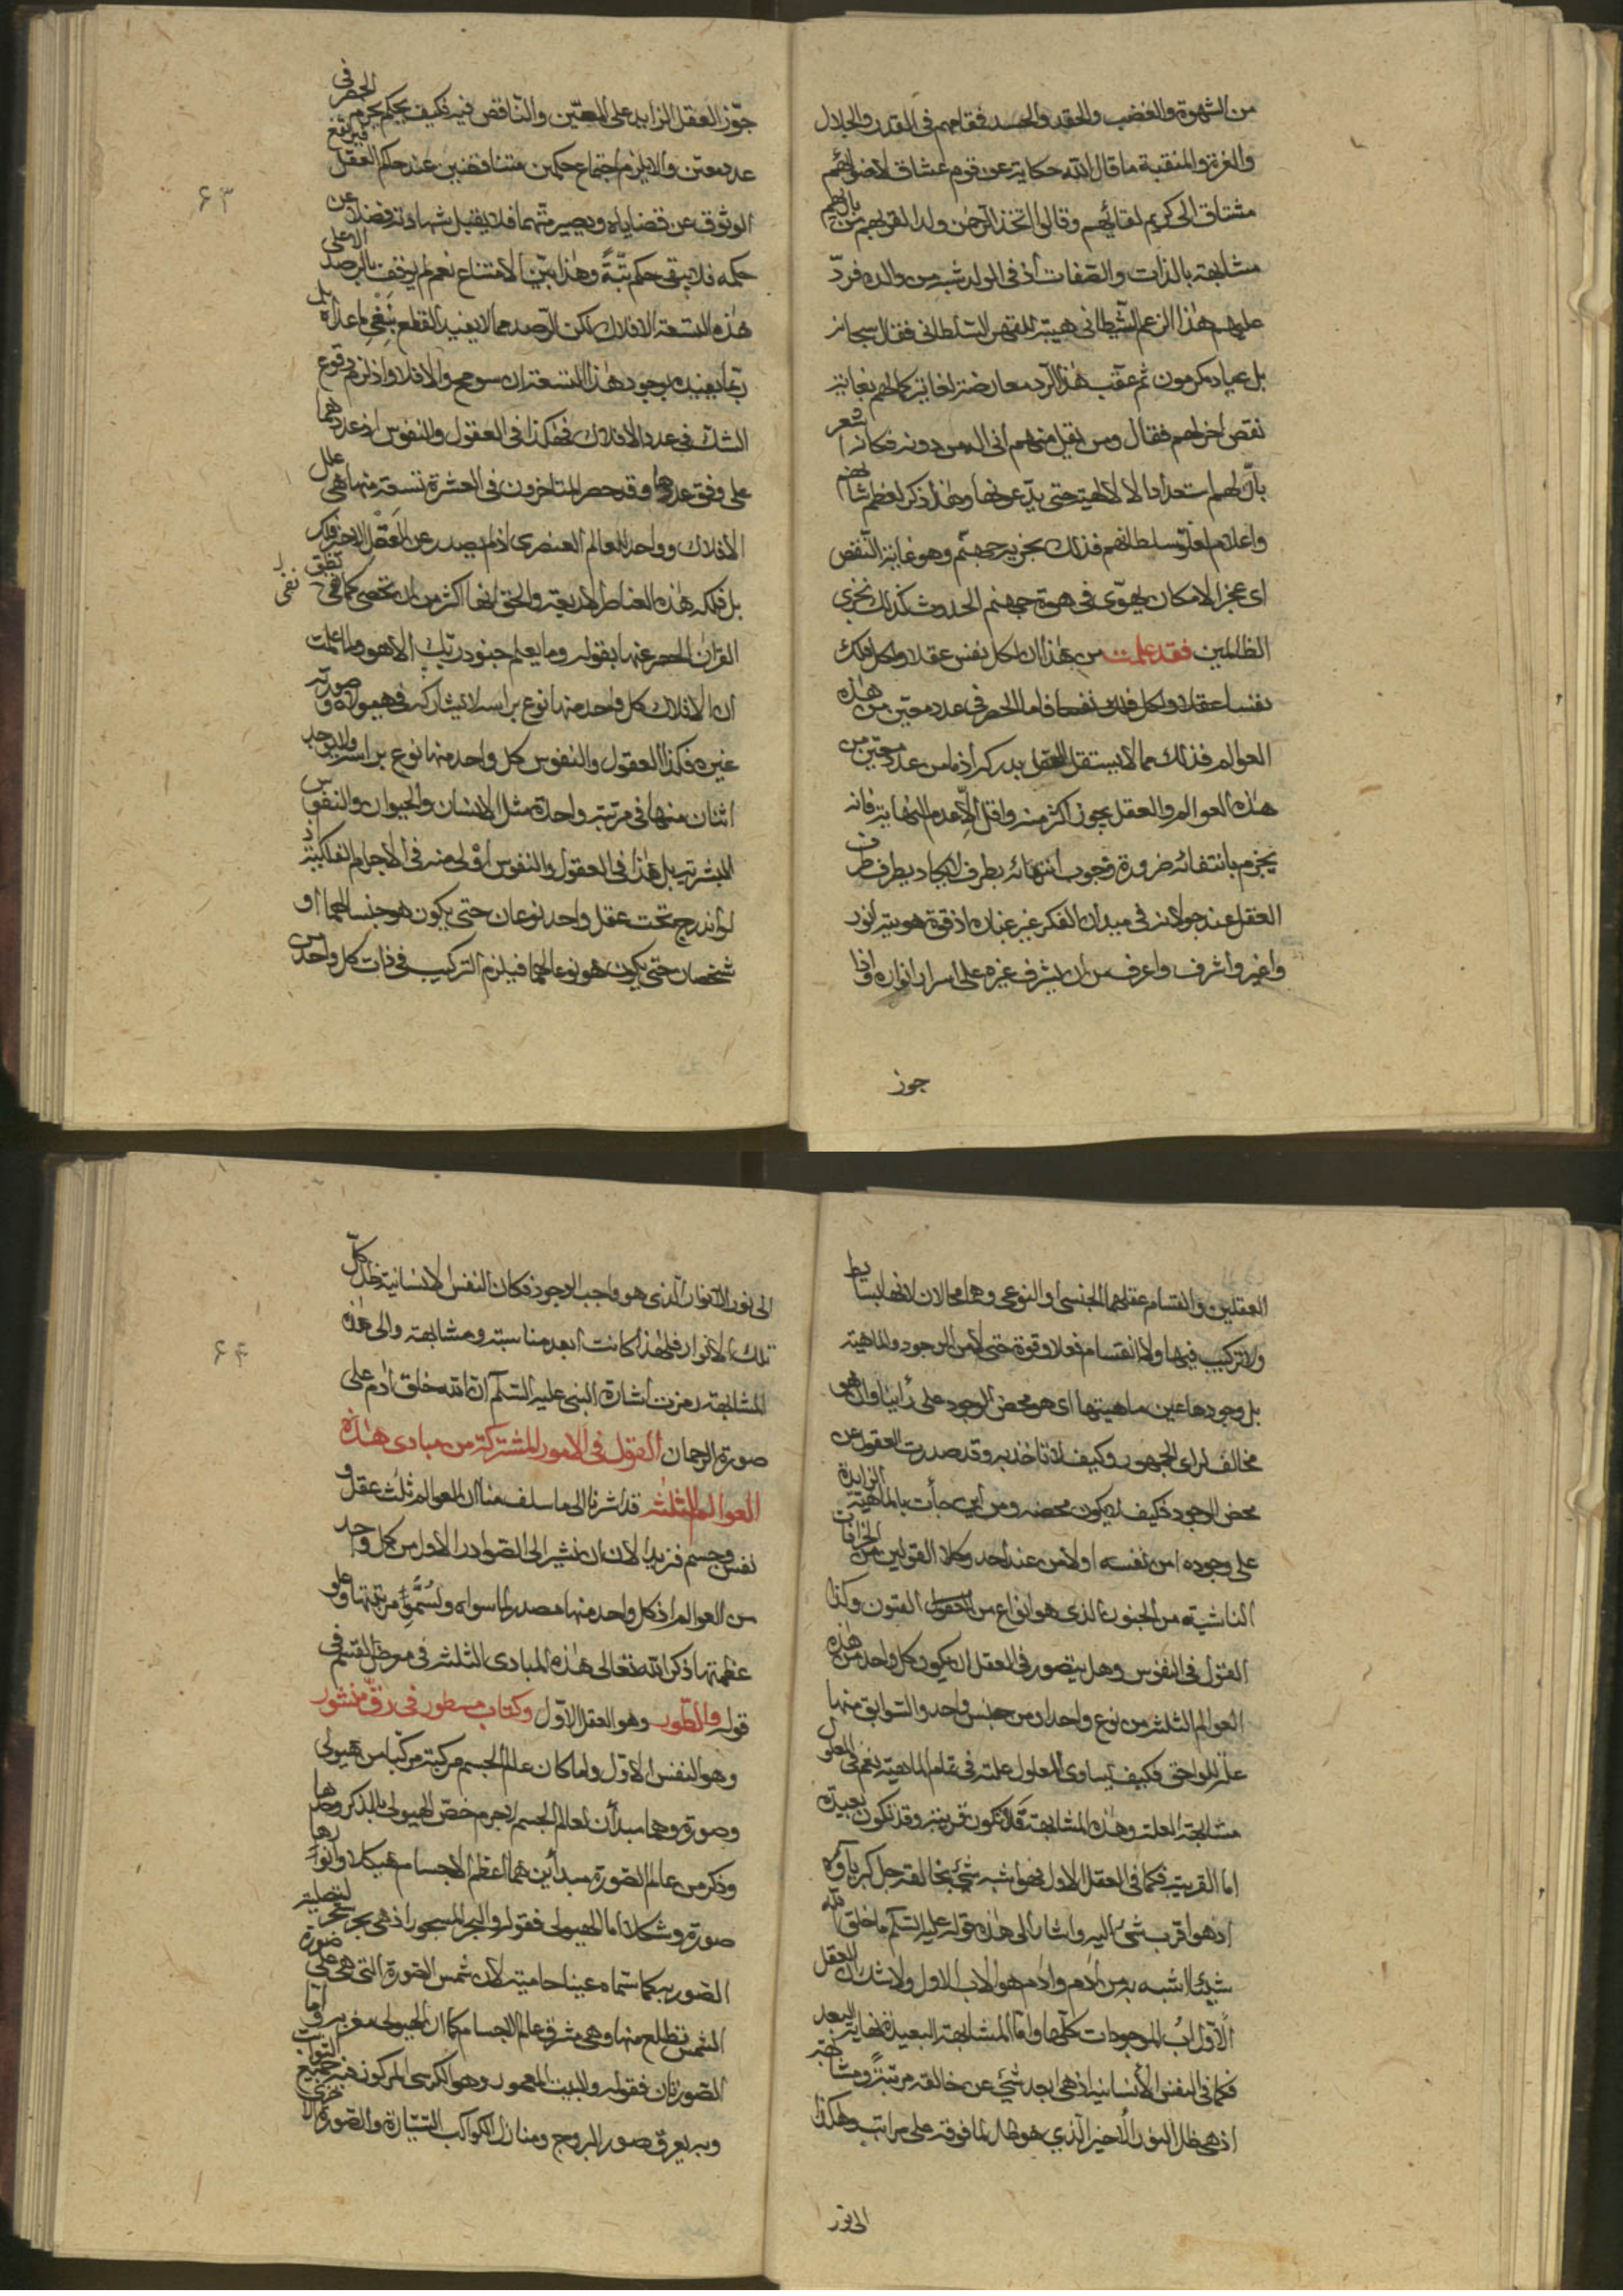 من الشهوة والغضب والحقد والحسد فمقامهم فى القدر والجلال
والعزة والمنقبة ما قال الله حكاية عن قوم عشاق لاضوائهم
مشتاق الى كريم لقائهم وقالوا اتخذ الرحمن ولدا لقربهم من بارئهم
مشابهة بالذات والصفات اذ فى الولد شبه من والده فردّ
عليهم هذا الزعم الشيطانى هيبة للقهر السلطانى فقال سبحانه
بل عباد مكرمون ثم عقّب هذا الرد معارضة لغاية كمالهم بغاية
نقص اخر لهم فقال ومن يقل منهم انى اله من دونه فكانه اشعر
بأنّ لهم استعدادا لالهية حتى يدّعونها وهذا ذكر لعظم شانهم
واعلام لعلو سلطانهم فذلك نجزيه جهنّم وهو غاية النّقص
اى عجز الامكان يهوّى فى هوة جهنم الحدوث كذلك نجزى
الظالمين فقد علمت من هذا ان لكل نفس عقلا ولكل فلك
نفسا عقلا ولكل فلك نفسا فاما الحصر فى عدد معيّن من هذه
العوالم فذلك مما لا يستقل العقل بدركه اذ ما من عدد معيّن من
هذه العوالم والعقل يجوز اكثر منه واقل الّا عدم النهاية فانه
يجزم بانتفائه ضرورة وجوب انتهائه بطرف الايجاد بطرف طرف
العقل عند جولانه فى ميدان الفكر غير عنانه اذ قوة هويته انور
واغير واشرف واعرف من ان يشرف غيره على اسرار انواره واذا
جوز
جوّز العقل الزايد على المعيّن والنّاقص فيه فكيف يحكم بجزم الحصر فى
عدد معيّن والا يلزم اجتماع حكمين متناقضين عند حكم العقل فيرتفع
الوثوق عن قضاياه ويصير متهما فلا يقبل شهادته فضلا عن
حكمه فلا يبقى حكم بتّة وهذا بيّن الامتناع نعم لم يوقف بالرصد الا على
هذه التسعة الافلاك لكن الرّصد مما لا يفيد القطع بنفى ما عداه بل
ربما يفيده بوجود هذا التسعة ان سومح والافلا واذ لزم وقوع
الشك فى عدد الافلاك فهكذا فى العقول والنفوس اذ عددهما
على وفق عددها وقد حصر المتاخرون فى العشرة تسعة منها هى علل
الافلاك وواحد للعالم العنصرى اذ لم يصدر عن العقل الاخر فلك
بل فلكه هذه العناصر الاربعة والحق انها اكثر من ان تحصى كما نطق
نفى
القران الحصر عنها بقوله وما يعلم جنود ربّك الّا هو وما علمت
ان الافلاك كل واحد منها نوع براسه لا يشاركه فى هيولاه وصورته
غيره فكذا العقول والنفوس كل واحد منها نوع براسه ولا يوجد
اثنان منها فى مرتبة واحدة مثل الانسان والحيوان والنفوس
البشرية بل هذا فى العقول والنفوس اولى منه فى الاجرام الفلكية اذ
لو اندرج تحت عقل واحد نوعان حتى يكون هو جنسا لهما او
شخصان حتى يكون هو نوعا لهما فيلزم التركيب فى ذات كل واحد من
٦٣
العقلين وانقسام عقلهما الجنسى او النوعى وهما محالان لانها بسايط
ولا تركيب فيها ولا انقسام فعلا وقوة حتى لا من الوجود والماهية
بل وجودها عين ماهيتها اى هو محض الوجود على رأينا وان هو
مخالف لراى الجمهور وكيف لا تاخذ به وقد صدرت العقول عن
محض الوجود فكيف لا يكون محضه ومن اين جأت بالماهية الزايدة
على وجوده امن نفسه اولا من عند احد وكلا القولين من الخرافات
الناشية من الجنون الذى هو انواع من الفنون وكذا
القول فى النفوس وهل يتصور فى العقل ان يكون كل واحد من هذه
العوالم الثلثة من نوع واحد او من جنس واحد والسوابق منها
علل للواحق فكيف يساوى المعلول علته فى تمام الماهية نعم فى المعلول
مشابهة العلة وهذه المشابهة قد تكون قريبة وقد تكون بعيدة
اما القريبة فكما فى العقل الاول فهو اشبه شئ بخالقه جل كبرياؤه
اذ هو اقرب شئ اليه واشار الى هذه قوله عليه السلم ما خلق الله
شيئا اشبه به من ادم وادم هو الاب الاول ولا شك ان العقل
الأوّل اب الموجودات كلّها وامّا المشابهة البعيدة نهاية البعد
فكما فى النفس الانسانية اذ هى ابعد شئ عن خالقه مرتبة ومشابهة
اذ هى ظل النور الاخير الّذى هو ظل لما فوقه على مراتبه وهكذا
الى نور
الى نور الانوار الّذى هو واجب الوجود فكان النفس الانسانية ظل كلّ
تلك الانوار فلهذا كانت ابعد مناسبة ومشابهة والى هذه
المشابهة رمزت اشارة النبى عليه السّلم ان الله خلق ادم على
صورة الرحمان القول فى الامور المشتركة من مبادى هذه
العوالم الثلثة قد اشرنا الى ما سلف منا ان العوالم ثلث عقل و
نفس وجسم فنريد الان ان نشير الى الصوادر الاول من كل واحد
من العوالم اذ كل واحد منها مصدر لما سواه ولسموّ مرتبتها وعلو
عظمتها ذكر الله تعالى هذه المبادى الثلثة فى معرض القسم فى
قوله والطّور وهو العقل الاوّل وكتاب مسطور فى رقّ منشور
وهو النفس الاوّل واما كان عالم الجسم مركبة مركّبا من هيولى
وصورة وهما مبدأن لعالم الجسم لا جرم خصّ الهيولى بالذكر وصدرها
وذكر من عالم الصورة مبدأين هما اعظم الاجسام هيكلا وانوارها
صورة وشكلا اما الهيولى فقوله والبحر المسجور اذ هى بحر تسجر لتصليته
الصور به كما سماه عينا حامية لان شمس الصورة التى هى على صورة
الشمس تطلع منها وهى مشرق عالم الاجسام كما ان الهيولى مغربه واما
الصورتان فقوله والبيت المعمور وهو الكرسى المركوز فيه جميع الثوابت
وبه يعرف صور البروج ومنازل الكواكب السّيّارة والصورة الاخرى
٦٤